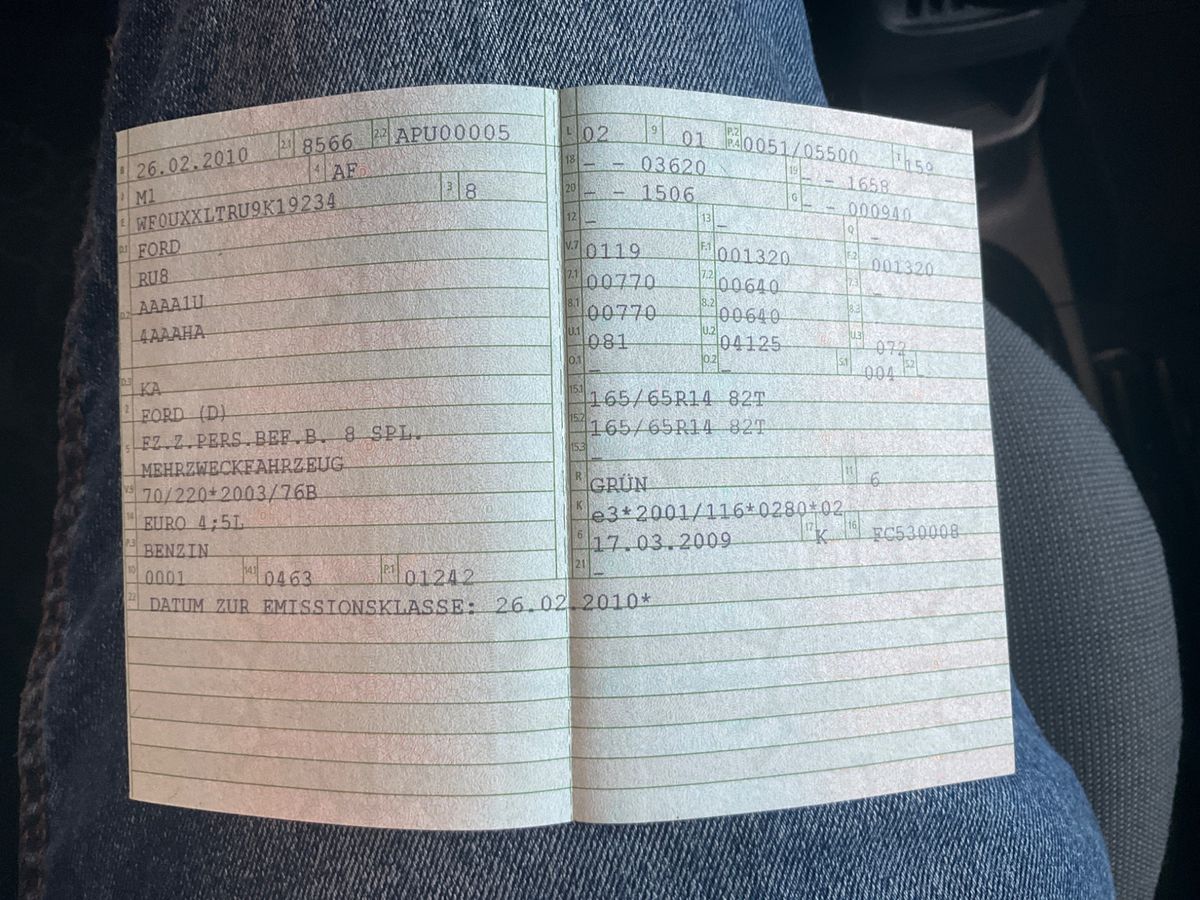 B 26.02.2010 2.1 8566 2.2 APU00005
J M1 4 AF
E WF0UXXLTRU9K19234 3 8
D.1 FORD
RU8
D.2 AAAA1U
4AAAHA
D.3 KA
2 FORD (D)
5 FZ.Z.PERS.BEF.B. 8 SPL.
MEHRZWECKFAHRZEUG
V.9 70/220*2003/76B
14 EURO 4;5L
P.3 BENZIN
10 0001 14.1 0463 P.1 01242
22 DATUM ZUR EMISSIONSKLASSE: 26.02.2010*
L 02 9 01 P.2 P.4 0051/05500 T 159
18 – – 03620 19 – – 1658
20 – – 1506 G – – 000940
12 – 13 – Q –
V.7 0119 F.1 001320 F.2 001320
7.1 00770 7.2 00640 7.3 –
8.1 00770 8.2 00640 8.3 –
U.1 081 U.2 04125 U.3 072
O.1 – O.2 – S.1 004 S.2 –
15.1 165/65R14 82T
15.2 165/65R14 82T
15.3 –
R GRÜN 11 6
K e3*2001/116*0280*02
6 17.03.2009 17 K 16 FC530008
21 –